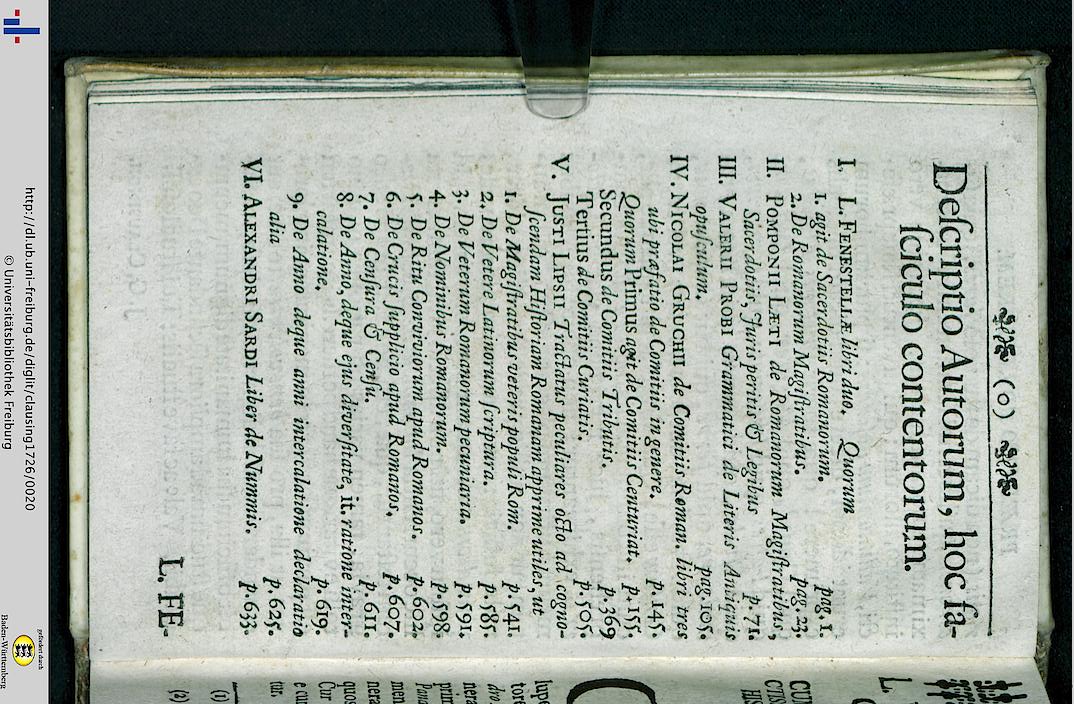 (o)
Deſcriptio Autorum, hoc fa-
ſciculo contentorum.
I. L. FENESTELLÆ libri duo. Quorum
1. agit de Sacerdotiis Romanorum. pag. 1.
2. De Romanorum Magiſtratibus. pag. 23.
II. POMPONII LÆTI de Romanorum Magiſtratibus,
Sacerdotiis, Juris peritis & Legibus p. 71.
III. VALERII PROBI Grammatici de Literis Antiquis
opuſculum. pag. 105.
IV. NICOLAI GRUCHII de Comitiis Roman. libri tres
ubi præfatio de Comitiis in genere. p. 145.
Quorum Primus agit de Comitiis Centuriat. p. 155.
Secundus de Comitiis Tributis. p. 369
Tertius de Comitiis Curiatis. p. 505.
V. JUSTI LIPSII Tractatus peculiares octo ad cogno-
ſcendam Hiſtoriam Romanam apprime utiles, ut
1. De Magiſtratibus veteris populi Rom. p. 541.
2. De Vetere Latinorum ſcriptura. p. 585.
3. De Veterum Romanorum pecuniaria. p. 591.
4. De Nominibus Romanorum. p. 598.
5. De Ritu Conviviorum apud Romanos. p. 602.
6. De Crucis ſupplicio apud Romanos. p. 607.
7. De Cenſura & Cenſu. p. 611.
8. De Anno, deque ejus diverſitate, it. ratione inter-
calatione. p. 619.
9. De Anno deque anni intercalatione declaratio
alia p. 625.
VI. ALEXANDRI SARDI Liber de Nummis. p. 633.
L. FE-
L.
CUPN
CTIS
HIS
C
lupe
tore
dro.
nera
prim
Pana
men
nera
quos
Cur
e cu
tur.
(1)
(2)
http://dl.ub.uni-freiburg.de/diglit/clausing1726/0020
© Universitätsbibliothek Freiburg
gefördert durch
Baden-Württemberg